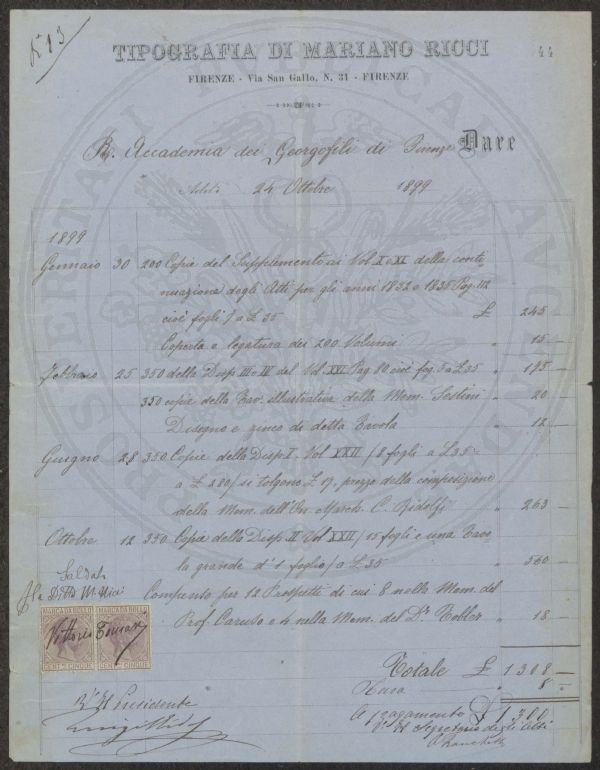 N° 13
44
TIPOGRAFIA DI MARIANO RICCI
FIRENZE - Via San Gallo, N. 31 - FIRENZE
R. Accademia dei Georgofili di Firenze Dare
Addì 24 Ottobre 1899
1899
Gennaio 30 200 Copie del Supplemento ai Vol. X e XI della conti
nuazione degli Atti per gli anni 1832 e 1835 Pag. 112
cioè fogli 7 a £ 35 £ 245 —
Coperta e legatura dei 200 Volumi " 15 —
Febbraio 25 350 della Disp. III e IV del Vol. XXI Pag. 80 cioè fog. 5 a £ 35 " 175 —
350 copie della Tav. illustrativa della Mem. Sestini " 20 —
Disegno e di detta Tavola " 12 —
Giugno 28 350 Copie della Disp. I Vol. XXII / 8 fogli a £ 35 =
a £ 280 / si tolgono £ 17, prezzo della composizione
della Mem. dell' March. C. Ridolfi " 263 —
Ottobre 12 350 Copie della Disp. II Vol. XXII / 15 fogli e una Tavo
la grande d'1 foglio / a £ 35 " 560 —
Compenso per 12 Prospetti di cui 8 nella Mem. del
Prof. Caruso e 4 nella Mem. del Dr. Tobler " 18 —
Saldato
p la Ditta M. Ricci
MARCA DA BOLLO MARCA DA BOLLO
Vittorio
CENT. MI CINQUE CENT. MI CINQUE
Totale £ 1308 —
" 8 —
A pagamento £ 1300
Il Segretario degli Atti
Il Presidente